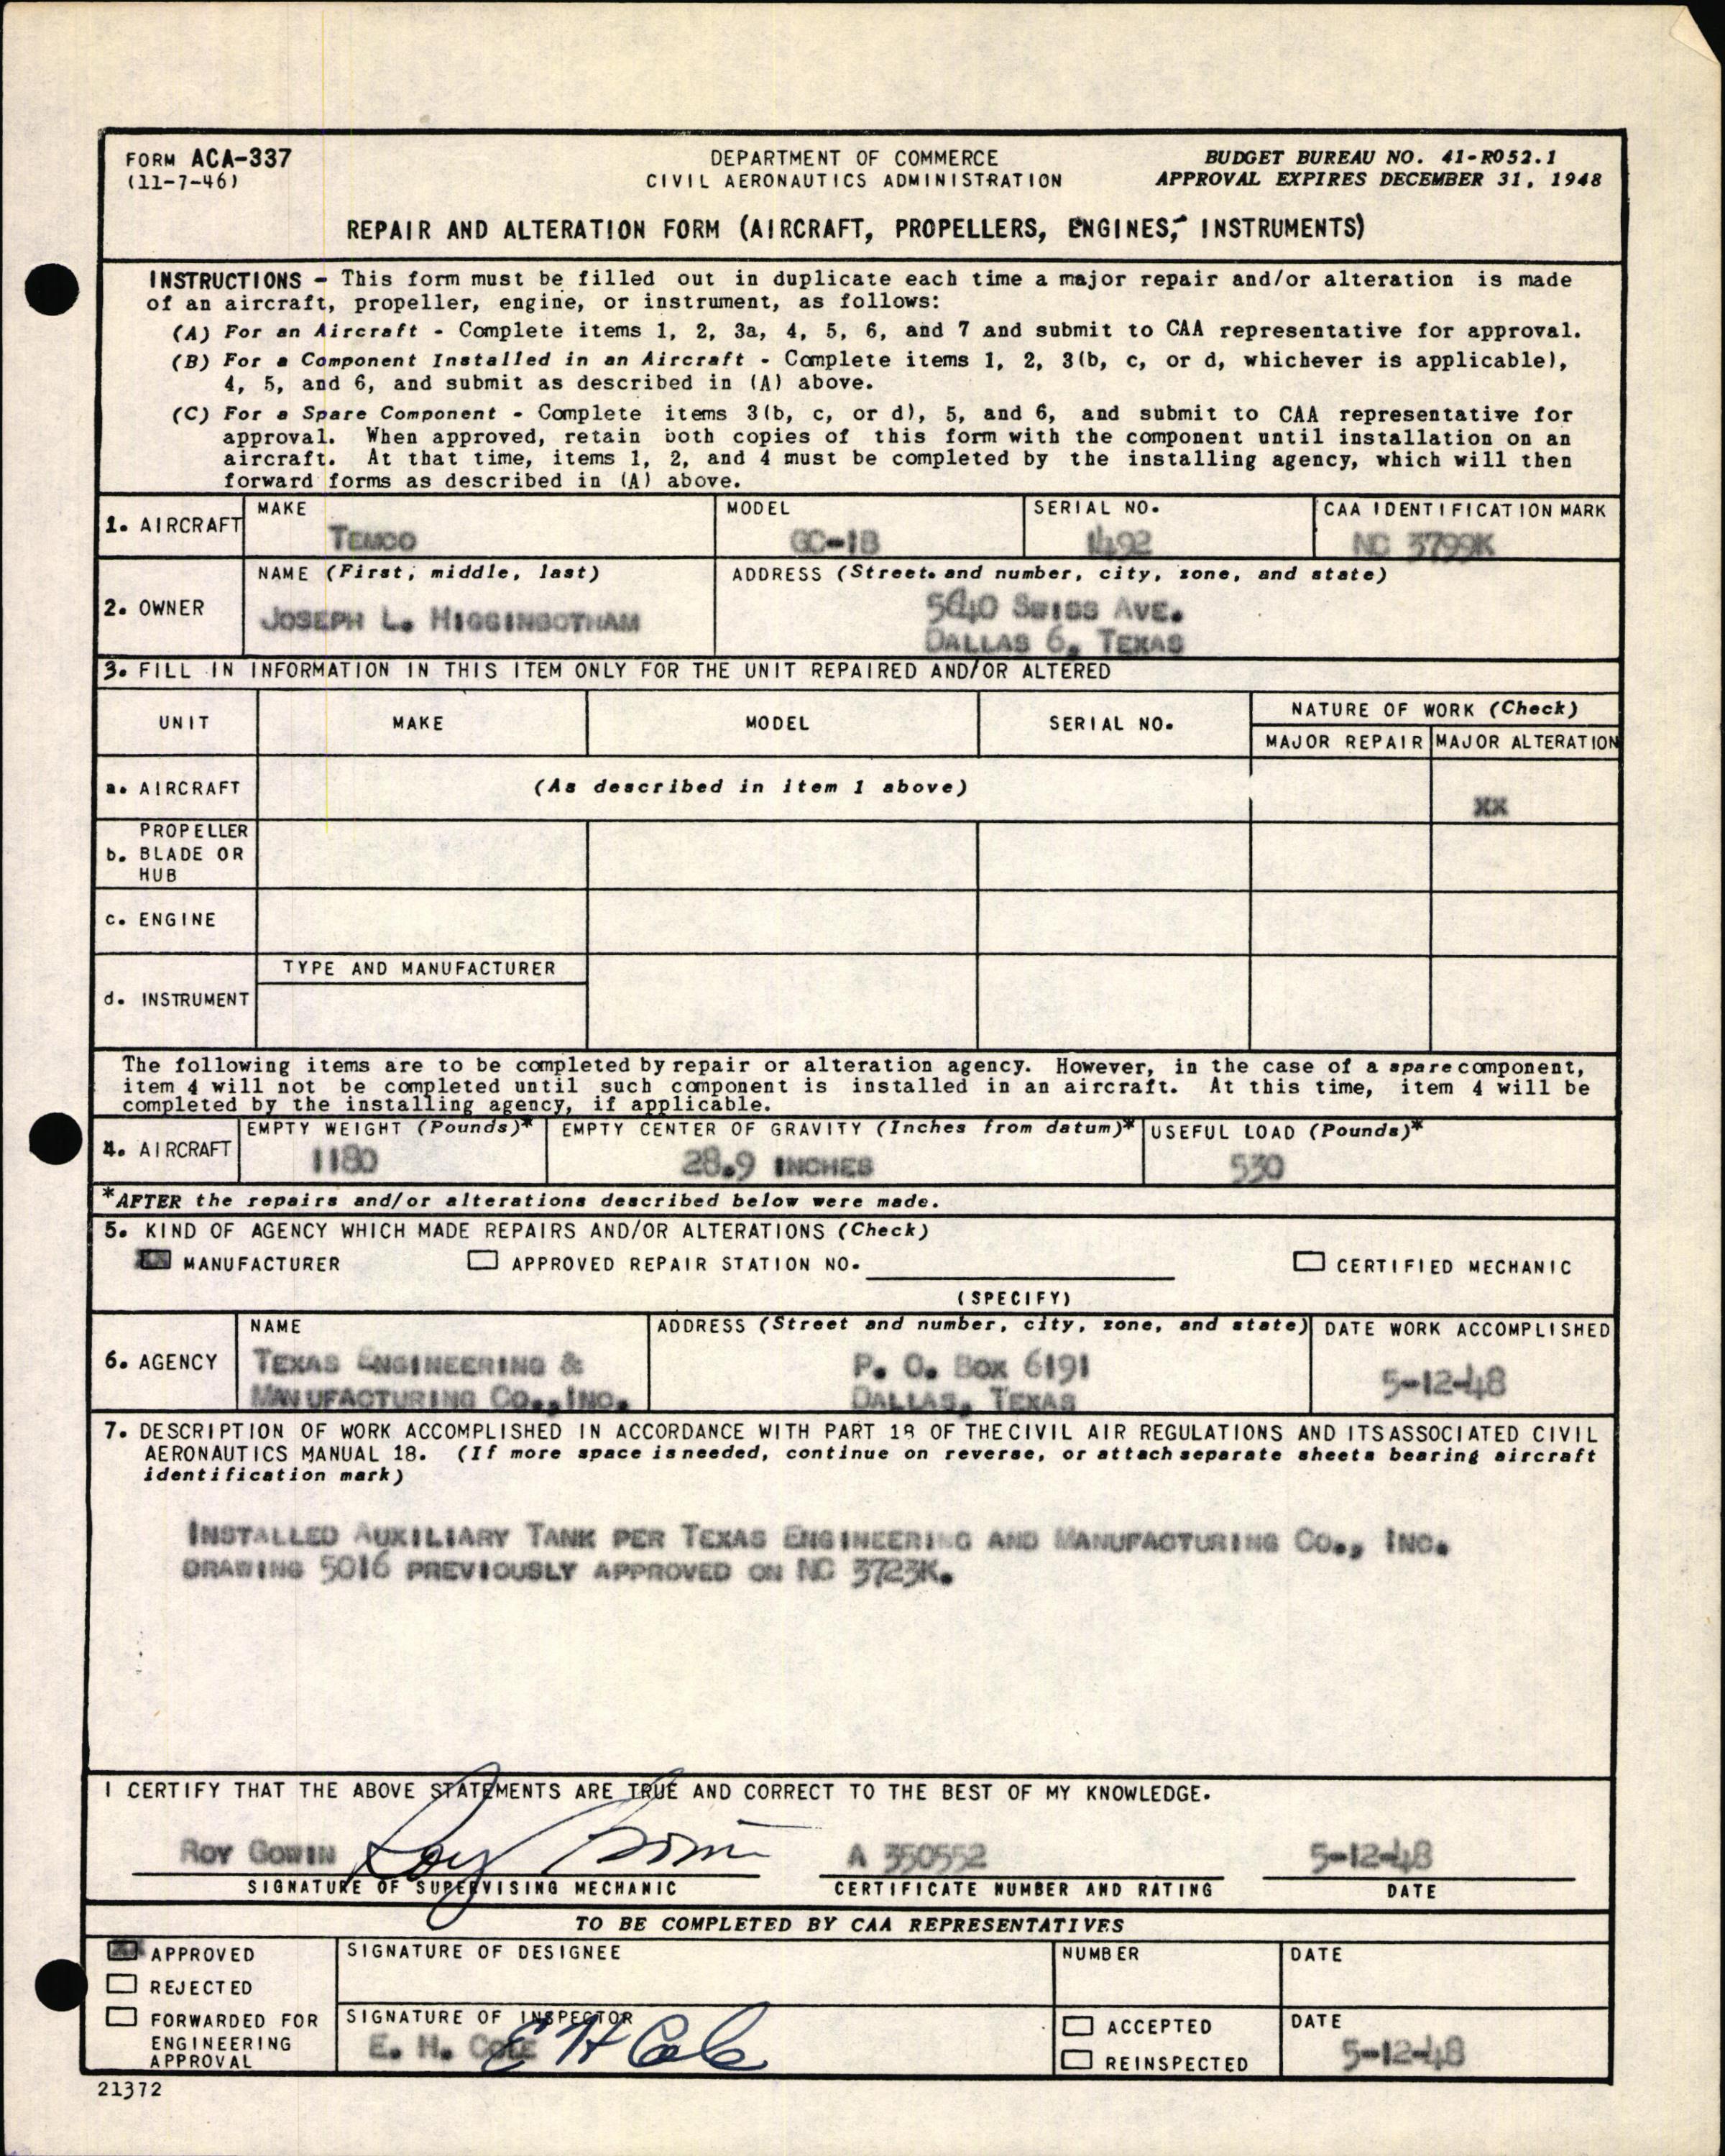 FORM ACA-337
(11-7-46)
DEPARTMENT OF COMMERCE
CIVIL AERONAUTICS ADMINISTRATION
BUDGET BUREAU NO. 41-R052.1
APPROVAL EXPIRES DECEMBER 31, 1948
REPAIR AND ALTERATION FORM (AIRCRAFT, PROPELLERS, ENGINES, INSTRUMENTS)
INSTRUCTIONS - This form must be filled out in duplicate each time a major repair and/or alteration is made
of an aircraft, propeller, engine, or instrument, as follows:
(A) For an Aircraft - Complete items 1, 2, 3a, 4, 5, 6, and 7 and submit to CAA representative for approval.
(B) For a Component Installed in an Aircraft - Complete items 1, 2, 3(b, c, or d, whichever is applicable),
4, 5, and 6, and submit as described in (A) above.
(C) For a Spare Component - Complete items 3(b, c, or d), 5, and 6, and submit to CAA representative for
approval. When approved, retain both copies of this form with the component until installation on an
aircraft. At that time, items 1, 2, and 4 must be completed by the installing agency, which will then
forward forms as described in (A) above.
1. AIRCRAFT
MAKE
TEMCO
MODEL
GC-1B
SERIAL NO.
1492
CAA IDENTIFICATION MARK
NC 3799K
2. OWNER
NAME (First, middle, last)
JOSEPH L. HIGGINBOTHAM
ADDRESS (Street and number, city, zone, and state)
5640 SWISS AVE.
DALLAS 6, TEXAS
3. FILL IN INFORMATION IN THIS ITEM ONLY FOR THE UNIT REPAIRED AND/OR ALTERED
UNIT
MAKE
MODEL
SERIAL NO.
NATURE OF WORK (Check)
MAJOR REPAIR
MAJOR ALTERATION
a. AIRCRAFT
(As described in item 1 above)
XX
PROPELLER
b. BLADE OR
HUB
c. ENGINE
TYPE AND MANUFACTURER
d. INSTRUMENT
The following items are to be completed by repair or alteration agency. However, in the case of a spare component,
item 4 will not be completed until such component is installed in an aircraft. At this time, item 4 will be
completed by the installing agency, if applicable.
4. AIRCRAFT
EMPTY WEIGHT (Pounds)*
1180
EMPTY CENTER OF GRAVITY (Inches from datum)*
28.9 INCHES
USEFUL LOAD (Pounds)*
530
*AFTER the repairs and/or alterations described below were made.
5. KIND OF AGENCY WHICH MADE REPAIRS AND/OR ALTERATIONS (Check)
MANUFACTURER
APPROVED REPAIR STATION NO.
(SPECIFY)
CERTIFIED MECHANIC
6. AGENCY
NAME
TEXAS ENGINEERING &
MANUFACTURING CO., INC.
ADDRESS (Street and number, city, zone, and state)
P. O. BOX 6191
DALLAS, TEXAS
DATE WORK ACCOMPLISHED
5-12-48
7. DESCRIPTION OF WORK ACCOMPLISHED IN ACCORDANCE WITH PART 18 OF THE CIVIL AIR REGULATIONS AND ITS ASSOCIATED CIVIL
AERONAUTICS MANUAL 18. (If more space is needed, continue on reverse, or attach separate sheets bearing aircraft
identification mark)
INSTALLED AUXILIARY TANK PER TEXAS ENGINEERING AND MANUFACTURING CO., INC.
DRAWING 5016 PREVIOUSLY APPROVED ON NC 3723K.
I CERTIFY THAT THE ABOVE STATEMENTS ARE TRUE AND CORRECT TO THE BEST OF MY KNOWLEDGE.
ROY GOWIN Roy Gowin
SIGNATURE OF SUPERVISING MECHANIC
A 350552
CERTIFICATE NUMBER AND RATING
5-12-48
DATE
TO BE COMPLETED BY CAA REPRESENTATIVES
APPROVED
REJECTED
FORWARDED FOR
ENGINEERING
APPROVAL
SIGNATURE OF DESIGNEE
NUMBER
DATE
SIGNATURE OF INSPECTOR
E. H. COLE E H Cole
ACCEPTED
REINSPECTED
DATE
5-12-48
21372